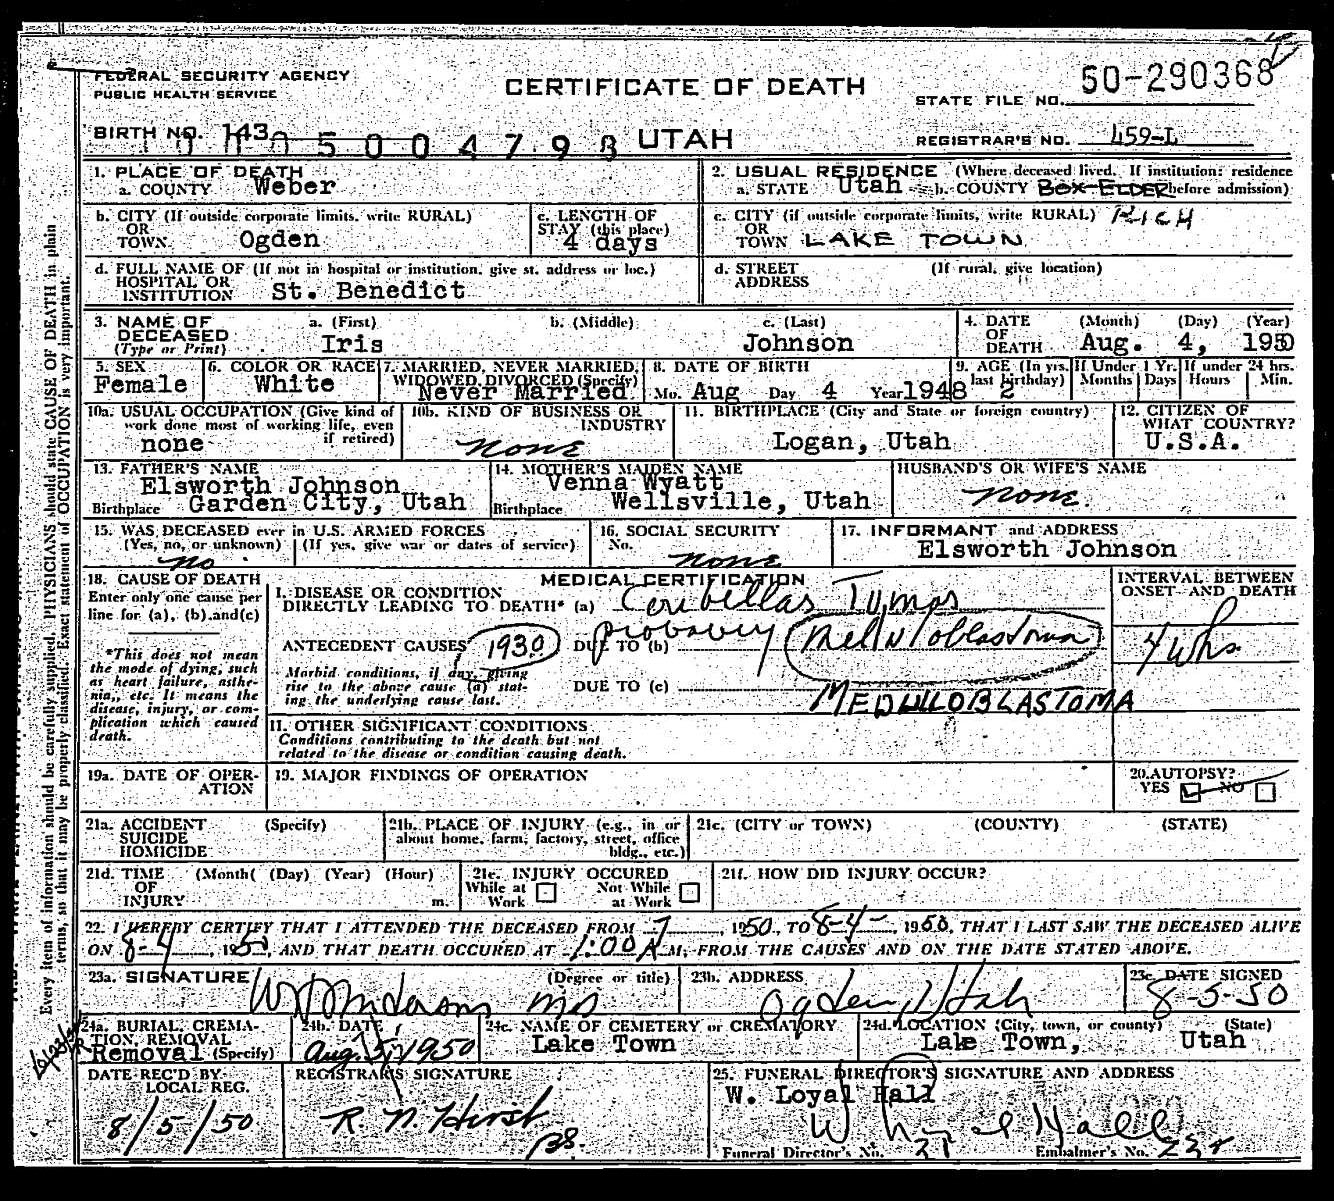 FEDERAL SECURITY AGENCY
PUBLIC HEALTH SERVICE
CERTIFICATE OF DEATH
STATE FILE NO. 50-290368
BIRTH NO. 143
UTAH
REGISTRAR'S NO. 459-L
1. PLACE OF DEATH
a. COUNTY Weber
2. USUAL RESIDENCE (Where deceased lived. If institution: residence
a. STATE Utah b. COUNTY BOX-ELDER before admission)
RICH
b. CITY (If outside corporate limits, write RURAL)
OR
TOWN Ogden
c. LENGTH OF
STAY (this place)
4 days
c. CITY (if outside corporate limits, write RURAL)
OR
TOWN LAKE TOWN
d. FULL NAME OF (If not in hospital or institution, give st. address or loc.)
HOSPITAL OR
INSTITUTION St. Benedict
d. STREET (If rural, give location)
ADDRESS
3. NAME OF a. (First) b. (Middle) c. (Last)
DECEASED
(Type or Print) Iris Johnson
4. DATE (Month) (Day) (Year)
OF
DEATH Aug. 4, 1950
5. SEX
Female
6. COLOR OR RACE
White
7. MARRIED, NEVER MARRIED,
WIDOWED, DIVORCED (Specify)
Never Married
8. DATE OF BIRTH
Mo. Aug Day 4 Year 1948
9. AGE (In yrs. last birthday) 2
If Under 1 Yr. Months Days
If under 24 hrs. Hours Min.
10a. USUAL OCCUPATION (Give kind of
work done most of working life, even
if retired)
none
10b. KIND OF BUSINESS OR
INDUSTRY
none
11. BIRTHPLACE (City and State or foreign country)
Logan, Utah
12. CITIZEN OF
WHAT COUNTRY?
U.S.A.
13. FATHER'S NAME
Elsworth Johnson
Birthplace Garden City, Utah
14. MOTHER'S MAIDEN NAME
Venna Wyatt
Birthplace Wellsville, Utah
HUSBAND'S OR WIFE'S NAME
none
15. WAS DECEASED ever in U.S. ARMED FORCES
(Yes, no, or unknown) (If yes, give war or dates of service)
no
16. SOCIAL SECURITY
No.
none
17. INFORMANT and ADDRESS
Elsworth Johnson
18. CAUSE OF DEATH
Enter only one cause per
line for (a), (b) and (c)
*This does not mean
the mode of dying, such
as heart failure, asthe-
nia, etc. It means the
disease, injury, or com-
plication which caused
death.
MEDICAL CERTIFICATION
I. DISEASE OR CONDITION
DIRECTLY LEADING TO DEATH* (a)
probably
ANTECEDENT CAUSES 1930 DUE TO (b)
Morbid conditions, if any, giving
rise to the above cause (a) stat-
ing the underlying cause last.
DUE TO (c)
MEDULLOBLASTOMA
INTERVAL BETWEEN
ONSET AND DEATH
II. OTHER SIGNIFICANT CONDITIONS
Conditions contributing to the death but not
related to the disease or condition causing death.
19a. DATE OF OPER-
ATION
19. MAJOR FINDINGS OF OPERATION
20. AUTOPSY?
YES NO
21a. ACCIDENT (Specify)
SUICIDE
HOMICIDE
21b. PLACE OF INJURY (e.g., in or
about home, farm, factory, street, office
bldg., etc.)
21c. (CITY or TOWN) (COUNTY) (STATE)
21d. TIME (Month( (Day) (Year) (Hour)
OF
INJURY m.
21e. INJURY OCCURED
While at Work Not While at Work
21f. HOW DID INJURY OCCUR?
22. I HEREBY CERTIFY THAT I ATTENDED THE DECEASED FROM 7, 1950, TO 8-4-, 1950, THAT I LAST SAW THE DECEASED ALIVE
ON 8-4, 1950, AND THAT DEATH OCCURED AT 1:00 A M; FROM THE CAUSES AND ON THE DATE STATED ABOVE.
23a. SIGNATURE (Degree or title)
MD
23b. ADDRESS
Ogden, Utah
23c. DATE SIGNED
8-5-50
24a. BURIAL, CREMA-
TION, REMOVAL
Removal (Specify)
24b. DATE
Aug. 5, 1950
24c. NAME OF CEMETERY or CREMATORY
Lake Town
24d. LOCATION (City, town, or county) (State)
Lake Town, Utah
DATE REC'D BY
LOCAL REG.
8/5/50
REGISTRAR'S SIGNATURE
25. FUNERAL DIRECTOR'S SIGNATURE AND ADDRESS
W. Loyal Hall
Funeral Director's No. 21 Embalmer's No.
Every item of information should be carefully supplied. PHYSICIANS should state CAUSE OF DEATH in plain
terms, so that it may be properly classified. Exact statement of OCCUPATION is very important.